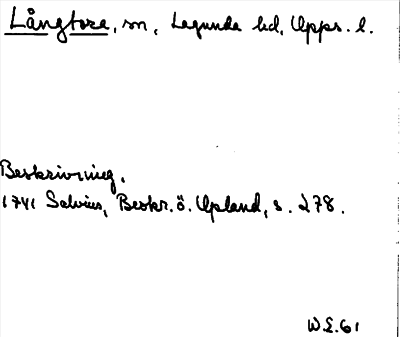 Långtora, sn, Lagunda hd, Upps. l.
Beskrivning.
1741 Salvius, Beskr. ö. Upland, s. 278.
W E. 61